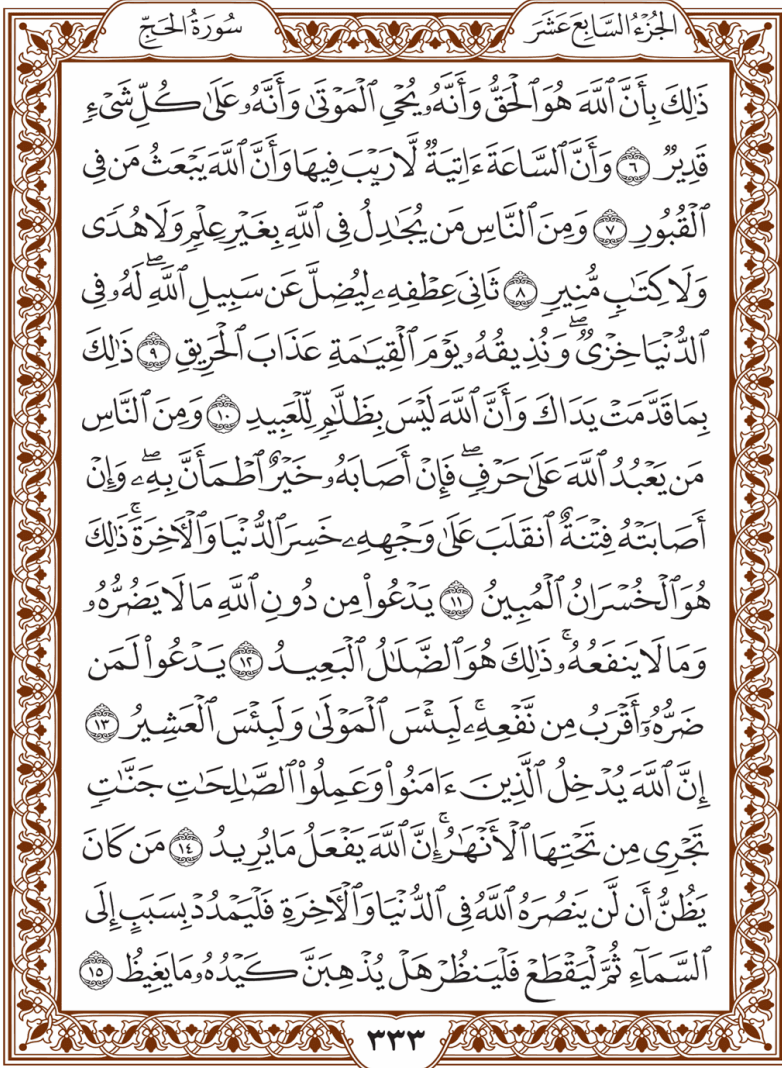 الجُزْءُ السَّابِعَ عَشَرَ
سُورَةُ الحَجِّ
ذَٰلِكَ بِأَنَّ ٱللَّهَ هُوَ ٱلۡحَقُّ وَأَنَّهُۥ يُحۡيِ ٱلۡمَوۡتَىٰ وَأَنَّهُۥ عَلَىٰ كُلِّ شَيۡءٖ
قَدِيرٞ ٦ وَأَنَّ ٱلسَّاعَةَ ءَاتِيَةٞ لَّا رَيۡبَ فِيهَا وَأَنَّ ٱللَّهَ يَبۡعَثُ مَن فِي
ٱلۡقُبُورِ ٧ وَمِنَ ٱلنَّاسِ مَن يُجَٰدِلُ فِي ٱللَّهِ بِغَيۡرِ عِلۡمٖ وَلَا هُدٗى
وَلَا كِتَٰبٖ مُّنِيرٖ ٨ ثَانِيَ عِطۡفِهِۦ لِيُضِلَّ عَن سَبِيلِ ٱللَّهِۖ لَهُۥ فِي
ٱلدُّنۡيَا خِزۡيٞۖ وَنُذِيقُهُۥ يَوۡمَ ٱلۡقِيَٰمَةِ عَذَابَ ٱلۡحَرِيقِ ٩ ذَٰلِكَ
بِمَا قَدَّمَتۡ يَدَاكَ وَأَنَّ ٱللَّهَ لَيۡسَ بِظَلَّٰمٖ لِّلۡعَبِيدِ ١٠ وَمِنَ ٱلنَّاسِ
مَن يَعۡبُدُ ٱللَّهَ عَلَىٰ حَرۡفٖۖ فَإِنۡ أَصَابَهُۥ خَيۡرٌ ٱطۡمَأَنَّ بِهِۦۖ وَإِنۡ
أَصَابَتۡهُ فِتۡنَةٌ ٱنقَلَبَ عَلَىٰ وَجۡهِهِۦ خَسِرَ ٱلدُّنۡيَا وَٱلۡأٓخِرَةَۚ ذَٰلِكَ
هُوَ ٱلۡخُسۡرَانُ ٱلۡمُبِينُ ١١ يَدۡعُواْ مِن دُونِ ٱللَّهِ مَا لَا يَضُرُّهُۥ
وَمَا لَا يَنفَعُهُۥۚ ذَٰلِكَ هُوَ ٱلضَّلَٰلُ ٱلۡبَعِيدُ ١٢ يَدۡعُواْ لَمَن
ضَرُّهُۥٓ أَقۡرَبُ مِن نَّفۡعِهِۦۚ لَبِئۡسَ ٱلۡمَوۡلَىٰ وَلَبِئۡسَ ٱلۡعَشِيرُ ١٣
إِنَّ ٱللَّهَ يُدۡخِلُ ٱلَّذِينَ ءَامَنُواْ وَعَمِلُواْ ٱلصَّٰلِحَٰتِ جَنَّٰتٖ
تَجۡرِي مِن تَحۡتِهَا ٱلۡأَنۡهَٰرُۚ إِنَّ ٱللَّهَ يَفۡعَلُ مَا يُرِيدُ ١٤ مَن كَانَ
يَظُنُّ أَن لَّن يَنصُرَهُ ٱللَّهُ فِي ٱلدُّنۡيَا وَٱلۡأٓخِرَةِ فَلۡيَمۡدُدۡ بِسَبَبٍ إِلَى
ٱلسَّمَآءِ ثُمَّ لۡيَقۡطَعۡ فَلۡيَنظُرۡ هَلۡ يُذۡهِبَنَّ كَيۡدُهُۥ مَا يَغِيظُ ١٥
٣٣٣